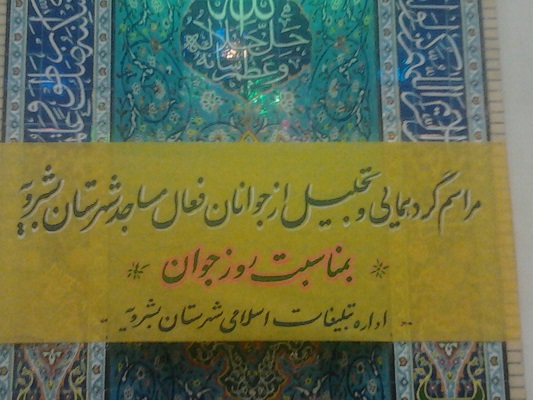 الله
جل جلاله
وعظم شأنه
مراسم گردهمائی و تجلیل از جوانان فعال مساجد شهرستان بشرویه
بمناسبت روز جوان
اداره تبلیغات اسلامی شهرستان بشرویه